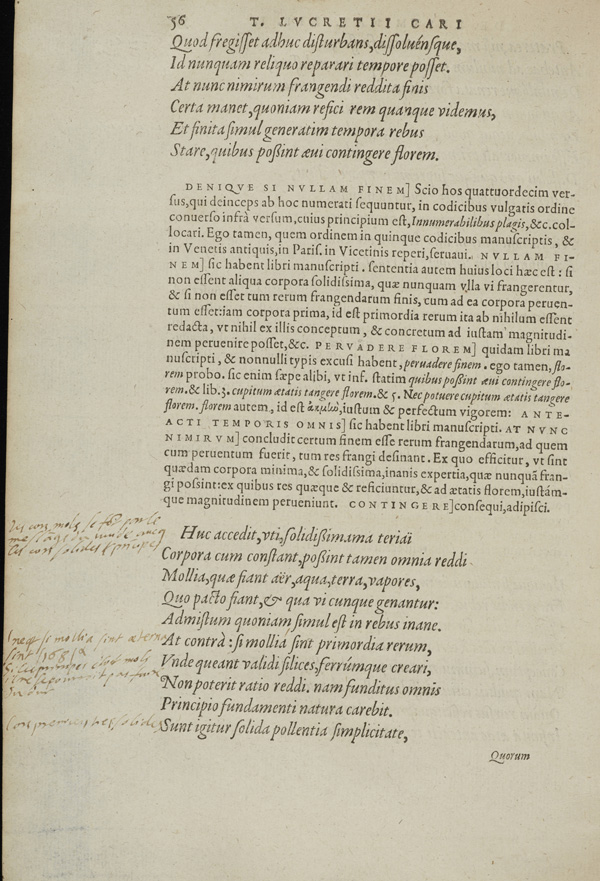 56 T. LVCRETII CARI
Quod fregisset adhuc disturbans, dissoluénsque,
Id nunquam reliquo reparari tempore posset.
At nunc nimirum frangendi reddita finis
Certa manet, quoniam refici rem quanque videmus,
Et finita simul generatim tempora rebus
Stare, quibus possint æui contingere florem.
DENIQVE SI NVLLAM FINEM] Scio hos quattuordecim ver-
sus, qui deinceps ab hoc numerati sequuntur, in codicibus vulgatis ordine
conuerso infrà versum, cuius principium est, Innumerabilibus plagis, &c. col-
locari. Ego tamen, quem ordinem in quinque codicibus manuscriptis, &
in Venetis antiquis, in Paris. in Vicetinis reperi, seruaui. NVLLAM FI-
NEM] sic habent libri manuscripti. sententia autem huius loci hæc est: si
non essent aliqua corpora solidissima, quæ nunquam vlla vi frangerentur,
& si non esset tum rerum frangendarum finis, cum ad ea corpora peruen-
tum esset: iam corpora prima, id est primordia rerum ita ab nihilum essent
redacta, vt nihil ex illis conceptum, & concretum ad iustam magnitudi-
nem peruenire posset, &c. PERVADERE FLOREM] quidam libri ma
nuscripti, & nonnulli typis excusi habent, peruadere finem. ego tamen, flo-
rem probo. sic enim sæpe alibi, vt inf. statim quibus possint æui contingere flo-
rem. & lib. 3. cupitum ætatis tangere florem. & 5. Nec potuere cupitum ætatis tangere
florem. florem autem, id est ἀκμὼ, iustum & perfectum vigorem: ANTE-
ACTI TEMPORIS OMNIS] sic habent libri manuscripti. AT NVNC
NIMIRVM] concludit certum finem esse rerum frangendarum, ad quem
cum peruentum fuerit, tum res frangi desinant. Ex quo efficitur, vt sint
quædam corpora minima, & solidissima, inanis expertia, quæ nunquā fran-
gi possint: ex quibus res quæque & reficiuntur, & ad ætatis florem, iustám-
que magnitudinem perueniunt. CONTINGERE] consequi, adipisci.
Huc accedit, vti, solidissimama teriai
Corpora cum constant, possint tamen omnia reddi
Mollia, quæ fiant aër, aqua, terra, vapores,
Quo pacto fiant, & qua vi cunque genantur:
Admistum quoniam simul est in rebus inane.
At contrà: si mollia sint primordia rerum,
Vnde queant validi silices, ferrúmque creari,
Non poterit ratio reddi. nam funditus omnis
Principio fundamenti natura carebit.
Sunt igitur solida pollentia simplicitate,
Quorum